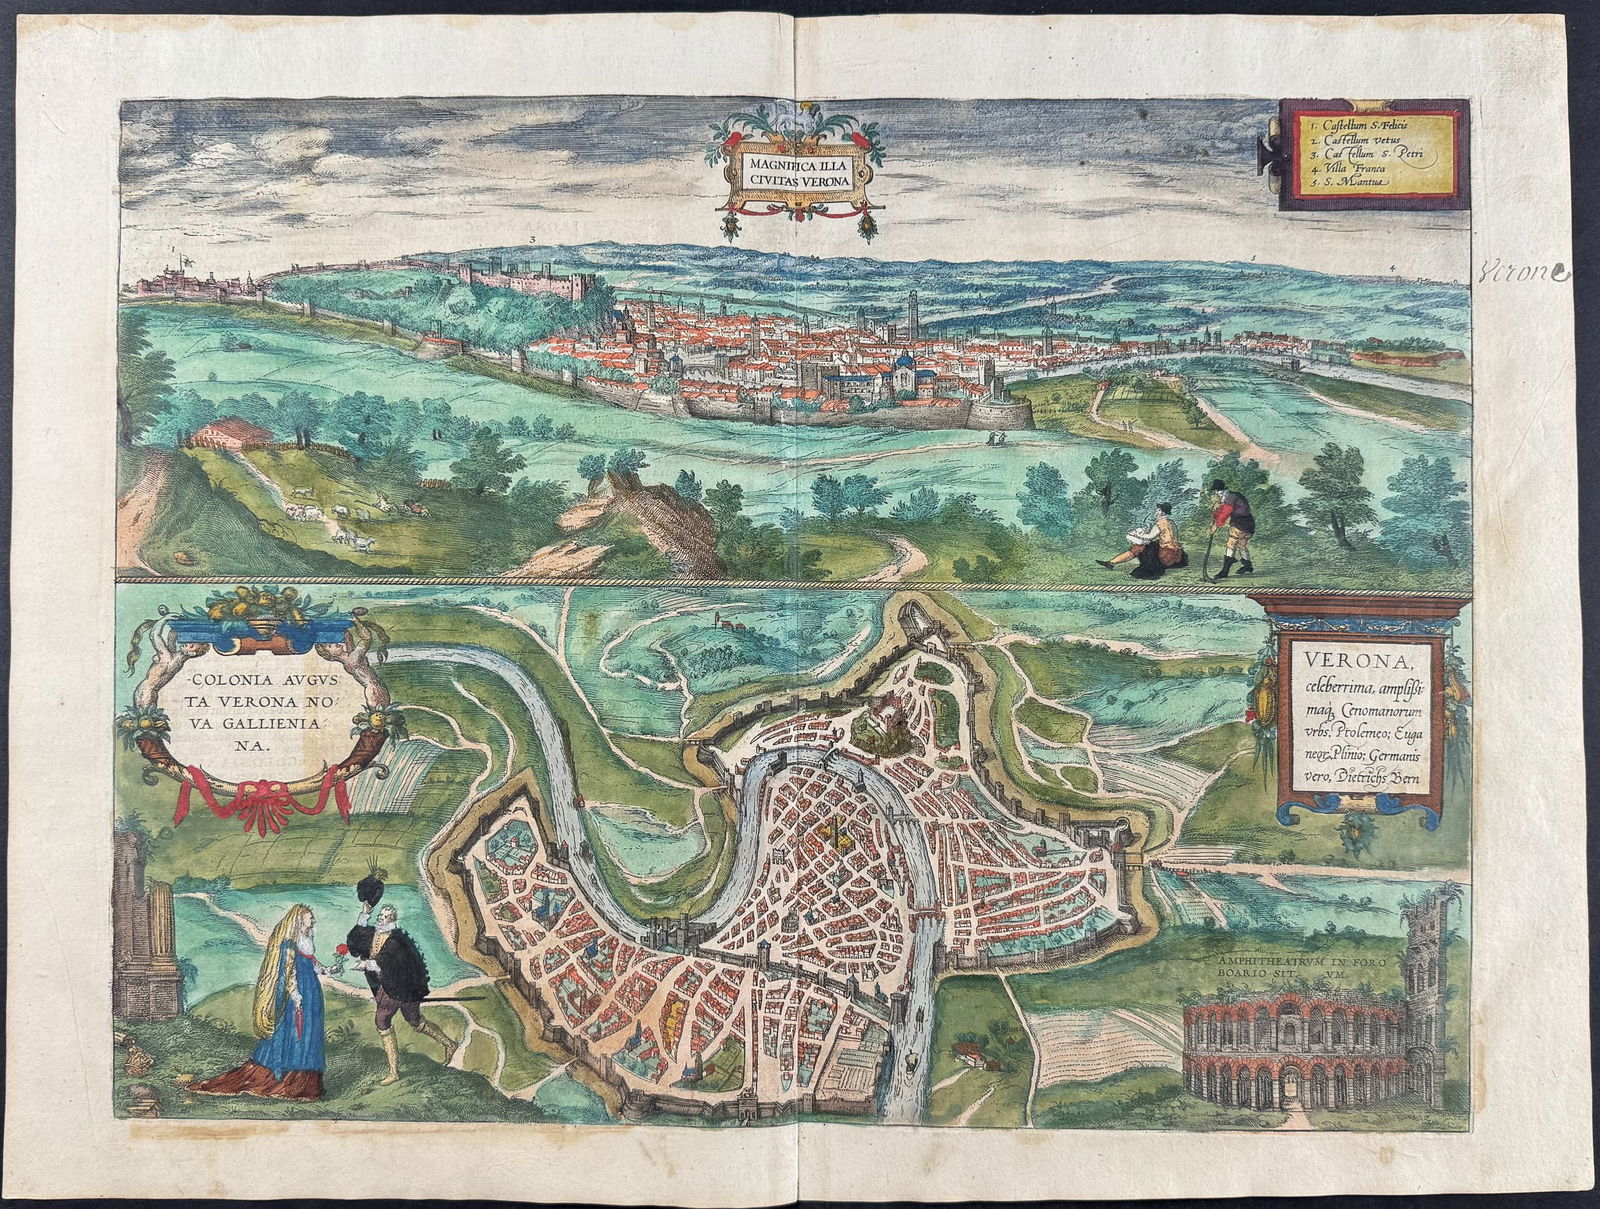 MAGNIFICA ILLA
CIVITAS VERONA
1. Castellum S. Felicis
2. Castellum vetus
3. Castellum S. Petri
4. Villa Franca
5. S. Mantua
1
3
5
4
Verone
COLONIA AVGVS
TA VERONA NO:
VA GALLIENIA:
NA.
VERONA,
celeberrima, amplißi:
maq; Cenomanorum
vrbs, Ptolemeo; Euga
neor, Plinio; Germanis
vero, Dietrichs Bern
AMPHITHEATRVM IN FORO
BOARIO SIT VM